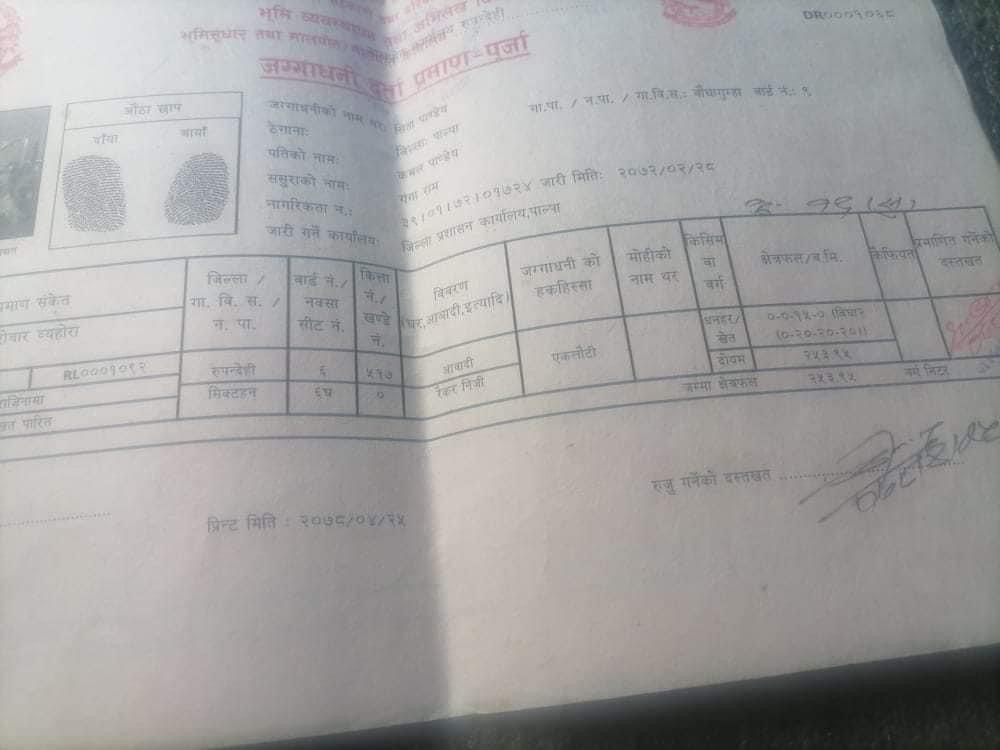 भूमि व्यवस्थापन तथा अभिलेख
भूमिसुधार तथा मालपोत रुपन्देही
DR०००१०६८
जग्गाधनी दर्ता प्रमाण-पूर्जा
औंठा छाप
दाँया बायाँ
जग्गाधनीको नाम थर: सिता पाण्डेय
ठेगाना: जिल्ला: पाल्पा गा.पा. / न.पा. / गा.वि.स.: बौघागुम्हा वार्ड नं.: ९
पतिको नाम: कमल पाण्डेय
ससुराको नाम: गंगा राम
नागरिकता नं.: ३९१०१।७२।०१७२४ जारी मिति: २०७२/०२/२८
जारी गर्ने कार्यालय: जिल्ला प्रशासन कार्यालय,पाल्पा
प्रमाण संकेत
रोवार व्यहोरा
जिल्ला / गा. वि. स. / न. पा.
वार्ड नं./ नक्सा सीट नं.
कित्ता नं./ खण्डे नं.
विवरण (घर,आवादी,इत्यादि)
जग्गाधनी को हकहिस्सा
मोहीको नाम थर
किसिम वा वर्ग
क्षेत्रफल/ब.मि.
कैफियत
प्रमाणित गर्नेको दस्तखत
RL०००१०९२ रुपन्देही ६ ५१७ आवादी एकलौटी धनहर/खेत ०-०-१५-० (विघा)
(०-२०-२०-२०)
राजिनामा सिक्टहन ६घ ० रैकर निजी दोयम २५३.९५
खत पारित
जम्मा क्षेत्रफल २५३.९५ वर्ग मिटर
रुजु गर्नेको दस्तखत
प्रिन्ट मिति : २०७८/०४/२५